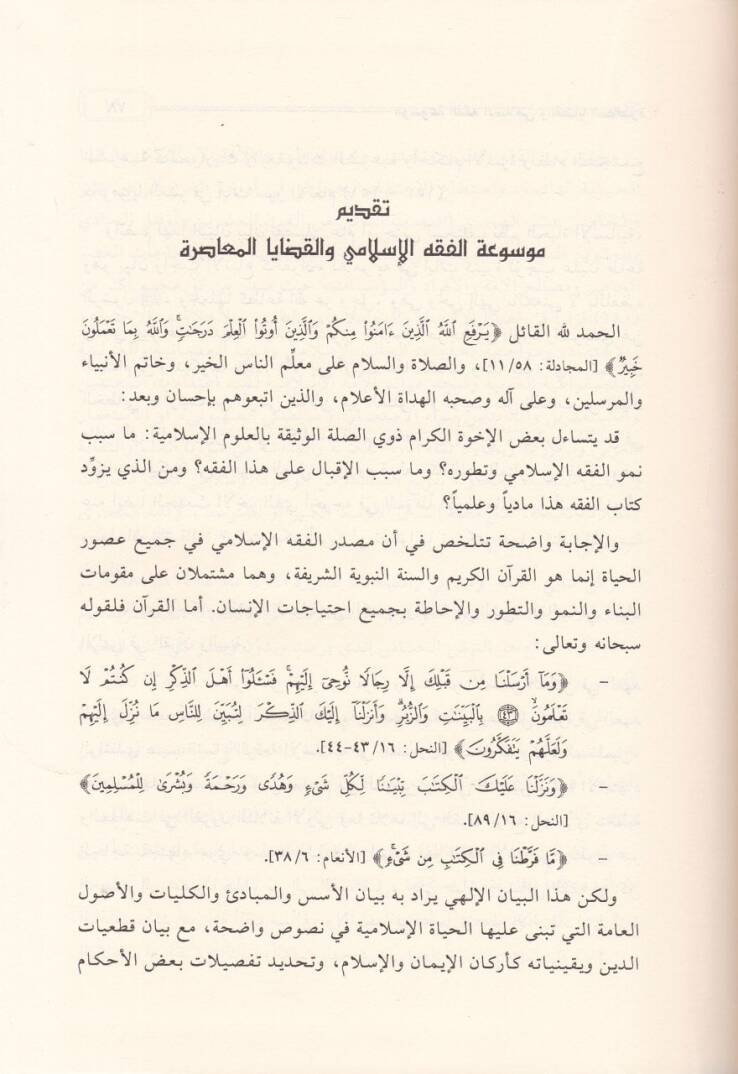 تقديم
موسوعة الفقه الإسلامي والقضايا المعاصرة
الحمد لله القائل ﴿يَرْفَعِ اللَّهُ الَّذِينَ ءَامَنُوا مِنكُمْ وَالَّذِينَ أُوتُوا الْعِلْمَ دَرَجَٰتٍۚ وَاللَّهُ بِمَا تَعْمَلُونَ
خَبِيرٌ﴾ [المجادلة: ١١/٥٨]، والصلاة والسلام على معلِّم الناس الخير، وخاتم الأنبياء
والمرسلين، وعلى آله وصحبه الهداة الأعلام، والذين اتبعوهم بإحسان وبعد:
قد يتساءل بعض الإخوة الكرام ذوي الصلة الوثيقة بالعلوم الإسلامية: ما سبب
نمو الفقه الإسلامي وتطوره؟ وما سبب الإقبال على هذا الفقه؟ ومن الذي يزوِّد
كتاب الفقه هذا مادياً وعلمياً؟
والإجابة واضحة تتلخص في أن مصدر الفقه الإسلامي في جميع عصور
الحياة إنما هو القرآن الكريم والسنة النبوية الشريفة، وهما مشتملان على مقومات
البناء والنمو والتطور والإحاطة بجميع احتياجات الإنسان. أما القرآن فلقوله
سبحانه وتعالى:
- ﴿وَمَآ أَرْسَلْنَا مِن قَبْلِكَ إِلَّا رِجَالًا نُّوحِىٓ إِلَيْهِمْۚ فَسْـَٔلُوٓا أَهْلَ الذِّكْرِ إِن كُنتُمْ لَا
تَعْلَمُونَۙ ٤٣ بِالْبَيِّنَٰتِ وَالزُّبُرِۗ وَأَنزَلْنَآ إِلَيْكَ الذِّكْرَ لِتُبَيِّنَ لِلنَّاسِ مَا نُزِّلَ إِلَيْهِمْ
وَلَعَلَّهُمْ يَتَفَكَّرُونَ﴾ [النحل: ٤٣/١٦-٤٤].
- ﴿وَنَزَّلْنَا عَلَيْكَ الْكِتَٰبَ تِبْيَٰنًا لِّكُلِّ شَىْءٍ وَهُدًى وَرَحْمَةً وَبُشْرَىٰ لِلْمُسْلِمِينَ﴾
[النحل: ٨٩/١٦].
- ﴿مَّا فَرَّطْنَا فِى الْكِتَٰبِ مِن شَىْءٍۚ﴾ [الأنعام: ٣٨/٦].
ولكن هذا البيان الإلهي يراد به بيان الأسس والمبادئ والكليات والأصول
العامة التي تبنى عليها الحياة الإسلامية في نصوص واضحة، مع بيان قطعيات
الدين ويقينياته كأركان الإيمان والإسلام، وتحديد تفصيلات بعض الأحكام